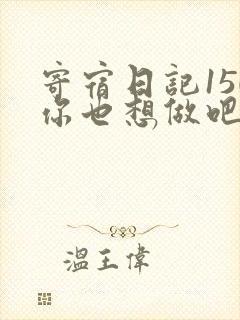 寄宿日記15
你也想做吧
温王偉